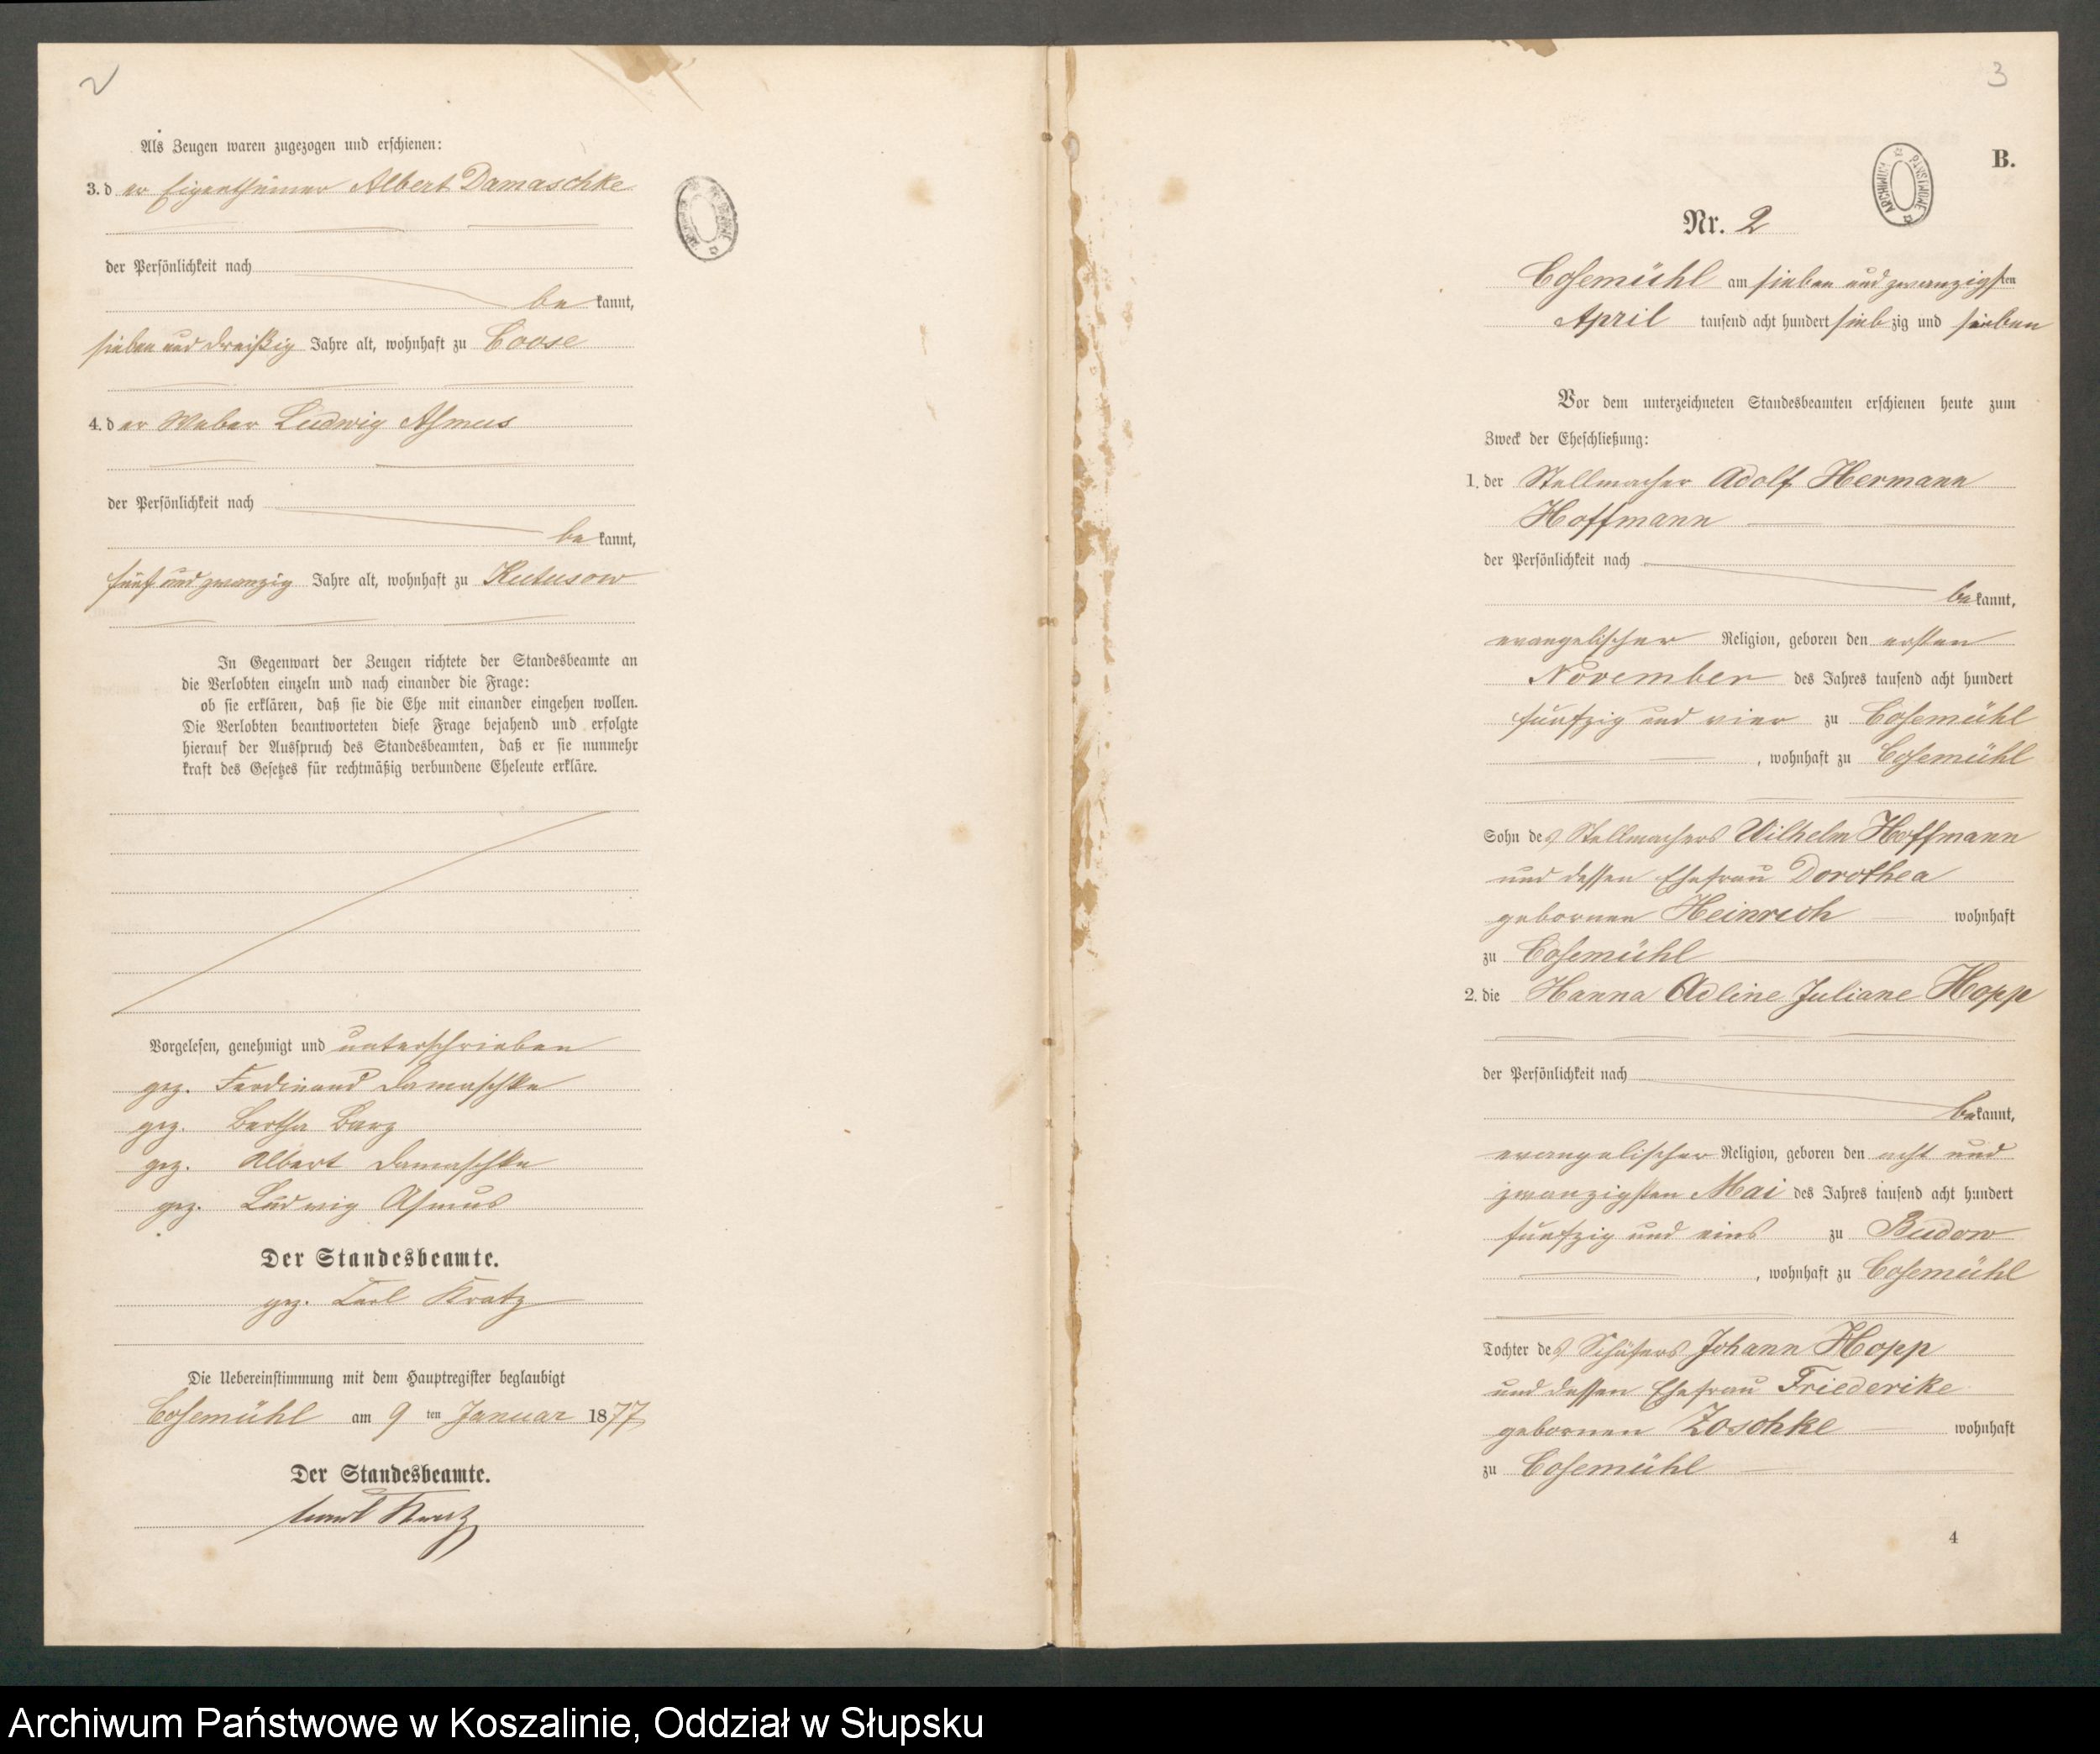 2
Als Zeugen waren zugezogen und erschienen:
3. der Eigenthümer Albert Damaschke
der Persönlichkeit nach
be kannt,
sieben und dreißig Jahre alt, wohnhaft zu Coose
4. der Weber Ludwig Asmus
der Persönlichkeit nach
be kannt,
fünf und zwanzig Jahre alt, wohnhaft zu Kutusow
In Gegenwart der Zeugen richtete der Standesbeamte an
die Verlobten einzeln und nach einander die Frage:
ob sie erklären, daß sie die Ehe mit einander eingehen wollen.
Die Verlobten beantworteten diese Frage bejahend und erfolgte
hierauf der Ausspruch des Standesbeamten, daß er sie nunmehr
kraft des Gesetzes für rechtmäßig verbundene Eheleute erkläre.
Vorgelesen, genehmigt und unterschrieben
gez. Ferdinand Damaschke
gez. Bertha Barz
gez. Albert Damaschke
gez. Ludwig Asmus
Der Standesbeamte.
gez. Carl Kratz
Die Uebereinstimmung mit dem Hauptregister beglaubigt
Cosemühl am 9 ten Januar 1877
Der Standesbeamte.
Carl Kratz
3
B.
ARCHIWUM PAŃSTWOWE
Nr. 2
Cosemühl am sieben und zwanzigsten
April tausend acht hundert siebzig und sieben
Vor dem unterzeichneten Standesbeamten erschienen heute zum
Zweck der Eheschließung:
1. der Stellmacher Adolf Hermann
Hoffmann
der Persönlichkeit nach
bekannt,
evangelischer Religion, geboren den ersten
November des Jahres tausend acht hundert
fünfzig und vier zu Cosemühl
, wohnhaft zu Cosemühl
Sohn des Stellmachers Wilhelm Hoffmann
und dessen Ehefrau Dorothea
gebornen Heinrich wohnhaft
zu Cosemühl
2. die Hanna Adline Juliane Hopp
der Persönlichkeit nach
bekannt,
evangelischer Religion, geboren den acht und
zwanzigsten Mai des Jahres tausend acht hundert
fünfzig und eins zu Budow
, wohnhaft zu Cosemühl
Tochter des Schäfers Johann Hopp
und dessen Ehefrau Friederike
gebornen Zoschke wohnhaft
zu Cosemühl
4
Archiwum Państwowe w Koszalinie, Oddział w Słupsku